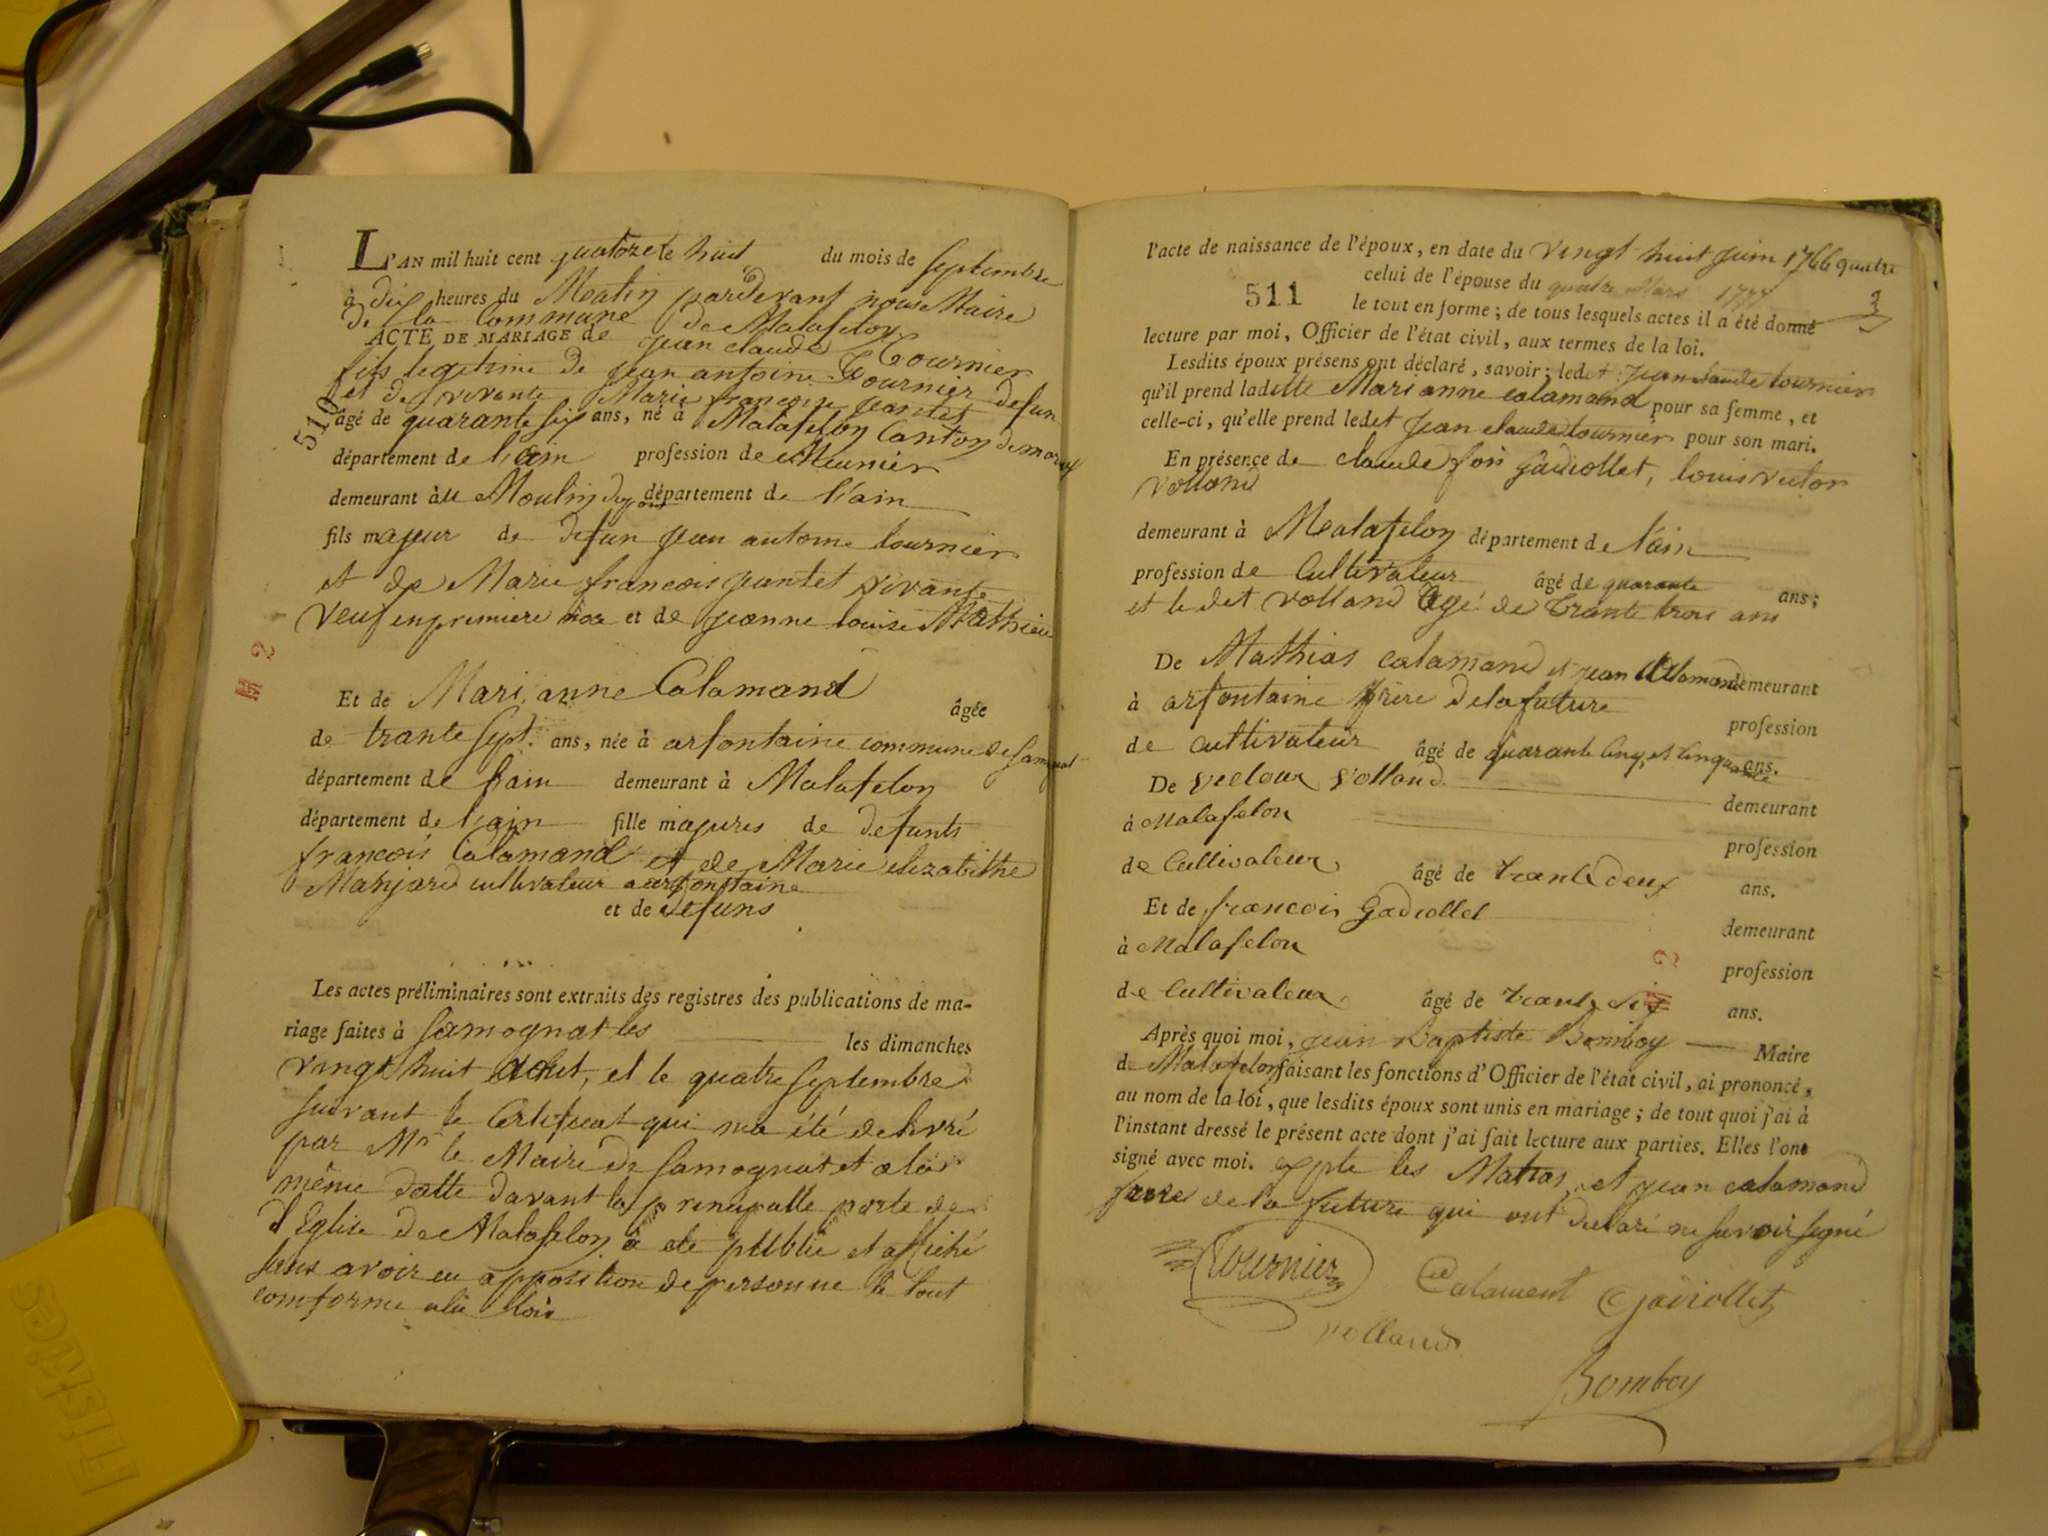 L'AN mil huit cent quatorze le huit du mois de septembre
à dix heures du Matin pardevant nous Maire
de la Commune de Malafelon
ACTE DE MARIAGE de jean claude Tournier
fils legitime de jean antoine Tournier defun
et de vivante Marie francoise jantet
510
âgé de quarante six ans, né à Malafelon Canton de
département de l'ain profession de Meunier
demeurant àu Moulin du pont département de l'ain
fils majeur de defun jean antoine tournier
et de Marie francois jantet vivante
veuf en premiere noce et de jeanne louise Mathieu
Et de Mari anne Calamand âgée
de trante sept ans, née à arfontaine commune de samognat
département de l'ain demeurant à Malafelon
département de l'ain fille majures de defunts
francois Calamand et de Marie elizabithe
Manjard cultivateur a arfontaine
et de defuns
Les actes préliminaires sont extraits des registres des publications de ma-
riage faites à samognat les les dimanches
vingt huit aout, et le quatre septembre
suivant le Certificat qui ma été delivré
par Mr le Maire de samognat et a la
même datte davant la principalle porte de
l'Eglise de Malafelon a ete publié et affiché
sans avoir eu apposition de personne le tout
comforme alu loix
l'acte de naissance de l'époux, en date du vingt huit juin 1766 quatre
celui de l'épouse du quatre Mars 1777
511
3
le tout en forme ; de tous lesquels actes il a été donné
lecture par moi, Officier de l'état civil, aux termes de la loi.
Lesdits époux présens ont déclaré, savoir ; ledet jean claude tournier
qu'il prend ladette Mari anne calamand pour sa femme, et
celle-ci, qu'elle prend ledet jean claude tournier pour son mari.
En présence de claude fois Gadiollet, louis victor
volland
demeurant à Malafelon département de l'ain
profession de Cultivateur âgé de quarante ans ;
et le det volland agé de trante trois ans
De Mathias calamand et jean Calamand demeurant
à arfontaine frere de la future profession
de cultivateur âgé de quarante cinq, et cinquante ans.
De victour Volland demeurant
à Malafelon profession
de Cultivateur âgé de trante deux ans.
Et de francois Gadiollet demeurant
à Malafelon profession
de Cultivateur âgé de trante six ans.
Après quoi moi, jean Baptiste Bomboy Maire
de Malafelon faisant les fonctions d'Officier de l'état civil, ai prononcé,
au nom de la loi, que lesdits époux sont unis en mariage ; de tout quoi j'ai à
l'instant dressé le présent acte dont j'ai fait lecture aux parties. Elles l'ont
signé avec moi. expte les Matias, et jean calamand
frere de la future qui ont declaré ne savoir signé
Tournier Calament Gadiollet
volland
Bomboy
Hismes